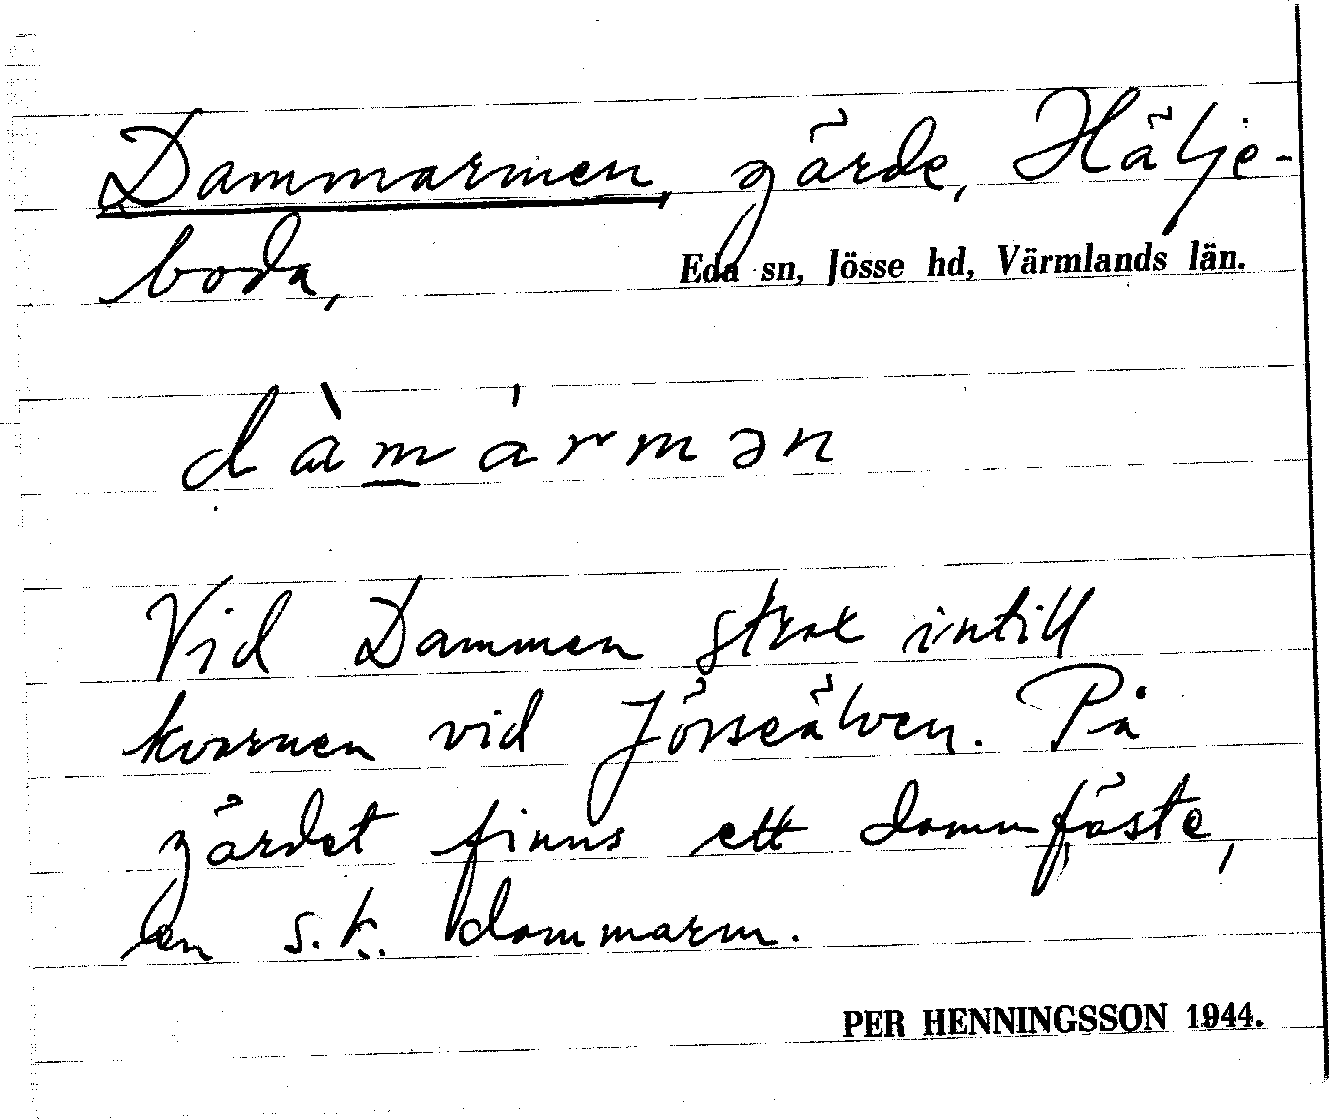 Dammarmen, gärde, Hälje-
boda,
Eda sn, Jösse hd, Värmlands län.
dàmármən
Vid Dammen strax intill
kvarnen vid Jösseälven. På
gärdet finns ett dammfäste,
en s.k. dammarm.
PER HENNINGSSON 1944.